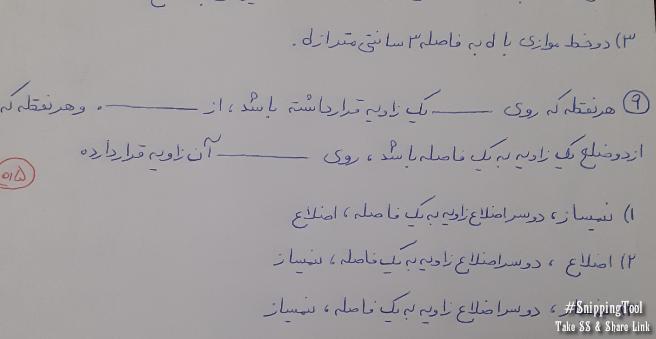 ۳) دو خط موازی با d به فاصله ۳ سانتی متر از d.
۹ هر نقطه که روی ــــــ یک زاویه قرار داشته باشد، از ــــــ. و هر نقطه که
از دو ضلع یک زاویه به یک فاصله باشد، روی ــــــ آن زاویه قرار دارده
۰٫۵
۱) نیمساز، دوسر اضلاع زاویه به یک فاصله، اضلاع
۲) اضلاع، دوسر اضلاع زاویه به یک فاصله، نیمساز
دوسر اضلاع زاویه به یک فاصله، نیمساز
#SnippingTool
Take SS & Share Link